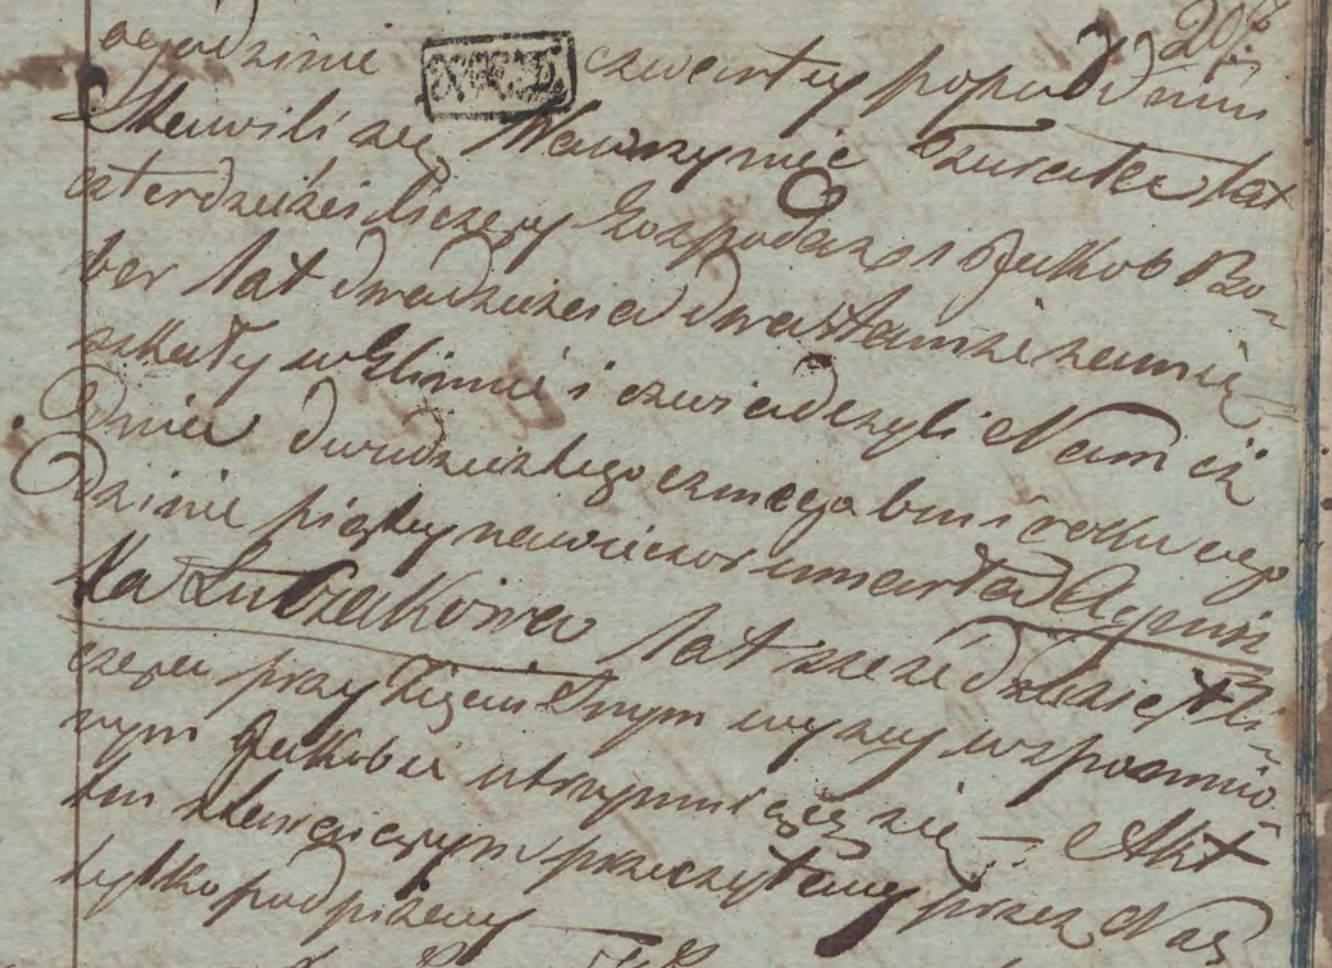 207
ogodzinie czwarty popołudniu
Stawili się Wawrzyniec lat
czterdzieści liczący Gospodarz i Jakob Bo-
ber lat dwadzieścia dwa tamże zamie
szkały w Glinnie i czwiadczyli Nam iż
Dnia dwudziestego czmego bm i roku ogo
dzinie piąty nawieczor umarła Agnisz
ka Luczakowa lat sześćdziesiąt li-
czącu przy Zięciu Swym wyzy wspomnio-
nym Jakobie utrzymuiącą się — Akt
ten stawaiącym przeczytany przez Nas
tylko podpisany —